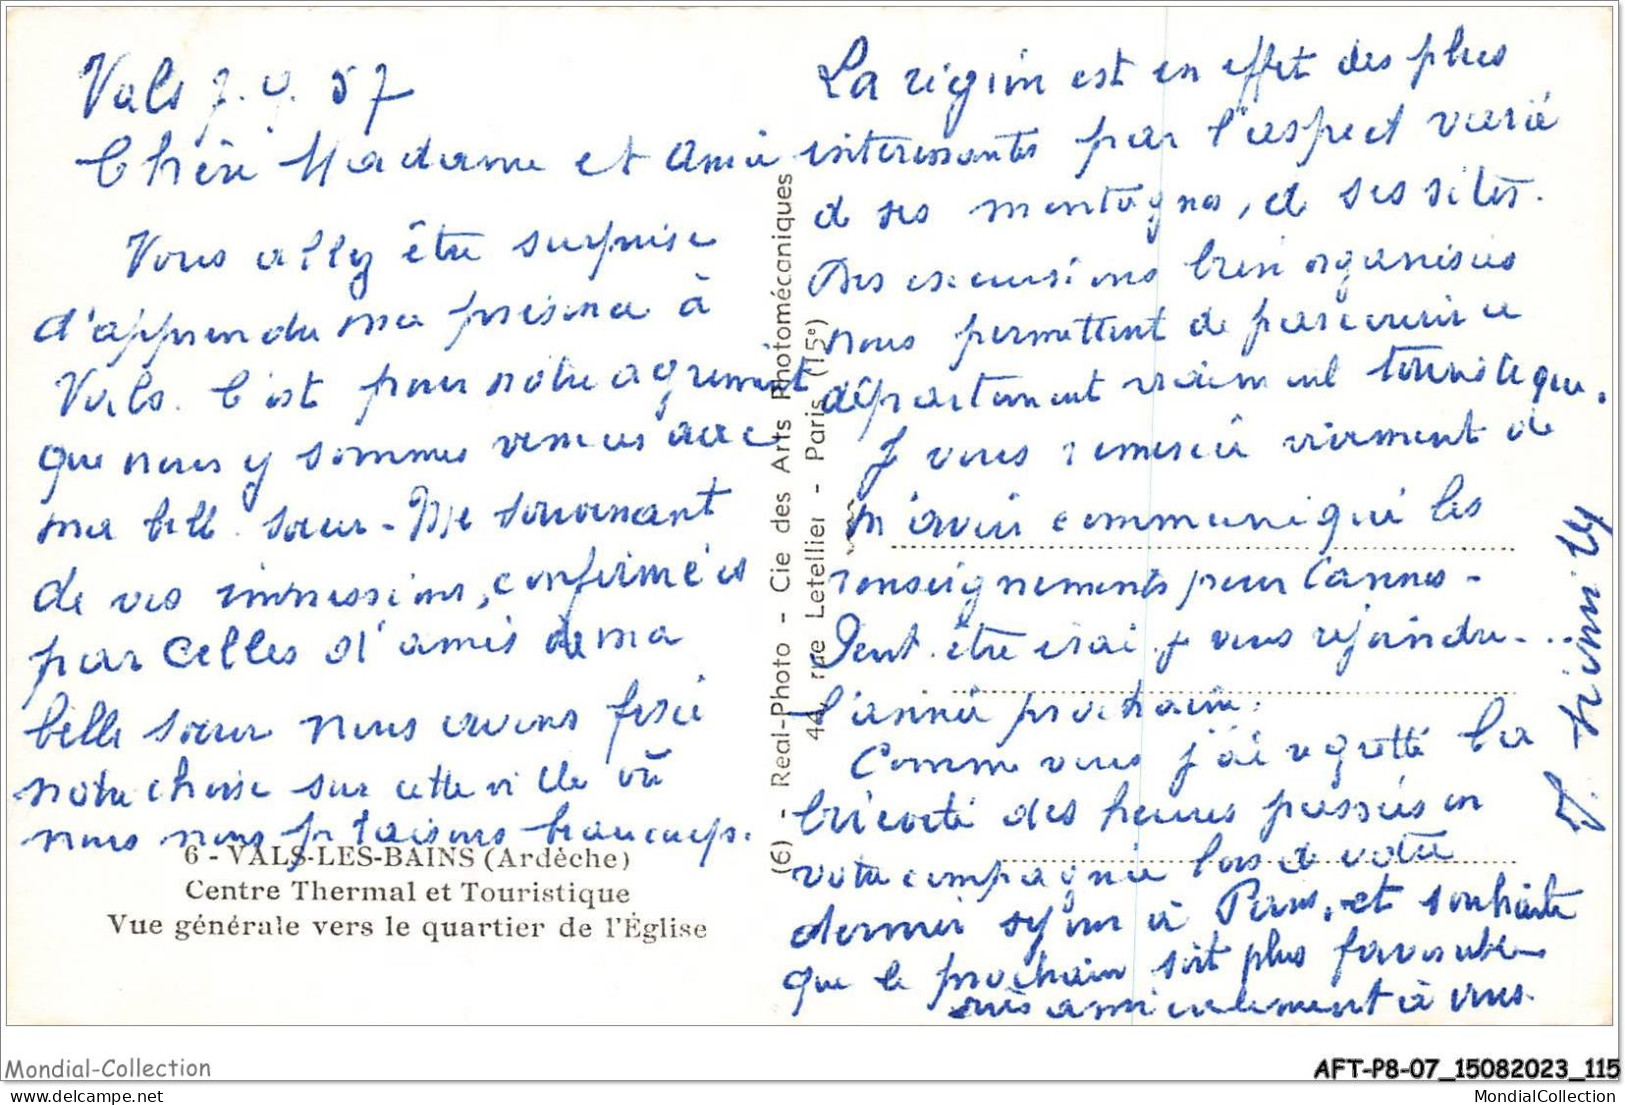 Vals 7.9.57
Chère Madame et Amie
Vous allez être surprise
d'apprendre ma présence à
Vals. C'est pour notre agrément
que nous y sommes venues avec
ma belle sœur - Me souvenant
de vos impressions, confirmées
par celles d'amis de ma
belle sœur nous avons fixé
notre choix sur cette ville où
nous nous plaisons beaucoup.
6 - VALS-LES-BAINS (Ardèche)
Centre Thermal et Touristique
Vue générale vers le quartier de l'Église
(6) - Real-Photo - Cie des Arts Photomécaniques
44, rue Letellier - Paris (15e)
La région est en effet des plus
intéressantes par l'aspect varié
d ses montagnes, et ses sites.
Des excursions bien organisées
nous permettent de parcourir ce
département vraiment touristique.
Je vous remercie vivement de
m'avoir communiqué les
renseignements pour Cannes -
Peut être irai-je vous rejoindre
l'année prochaine.
Comme vous j'ai regretté la
brièveté des heures passées en
votre compagnie lors de votre
dernier séjour à Paris, et souhaite
que le prochain soit plus favorable
Très amicalement à vous
Mondial-Collection
AFT-P8-07_15082023_115
delcampe.net
MondialCollection